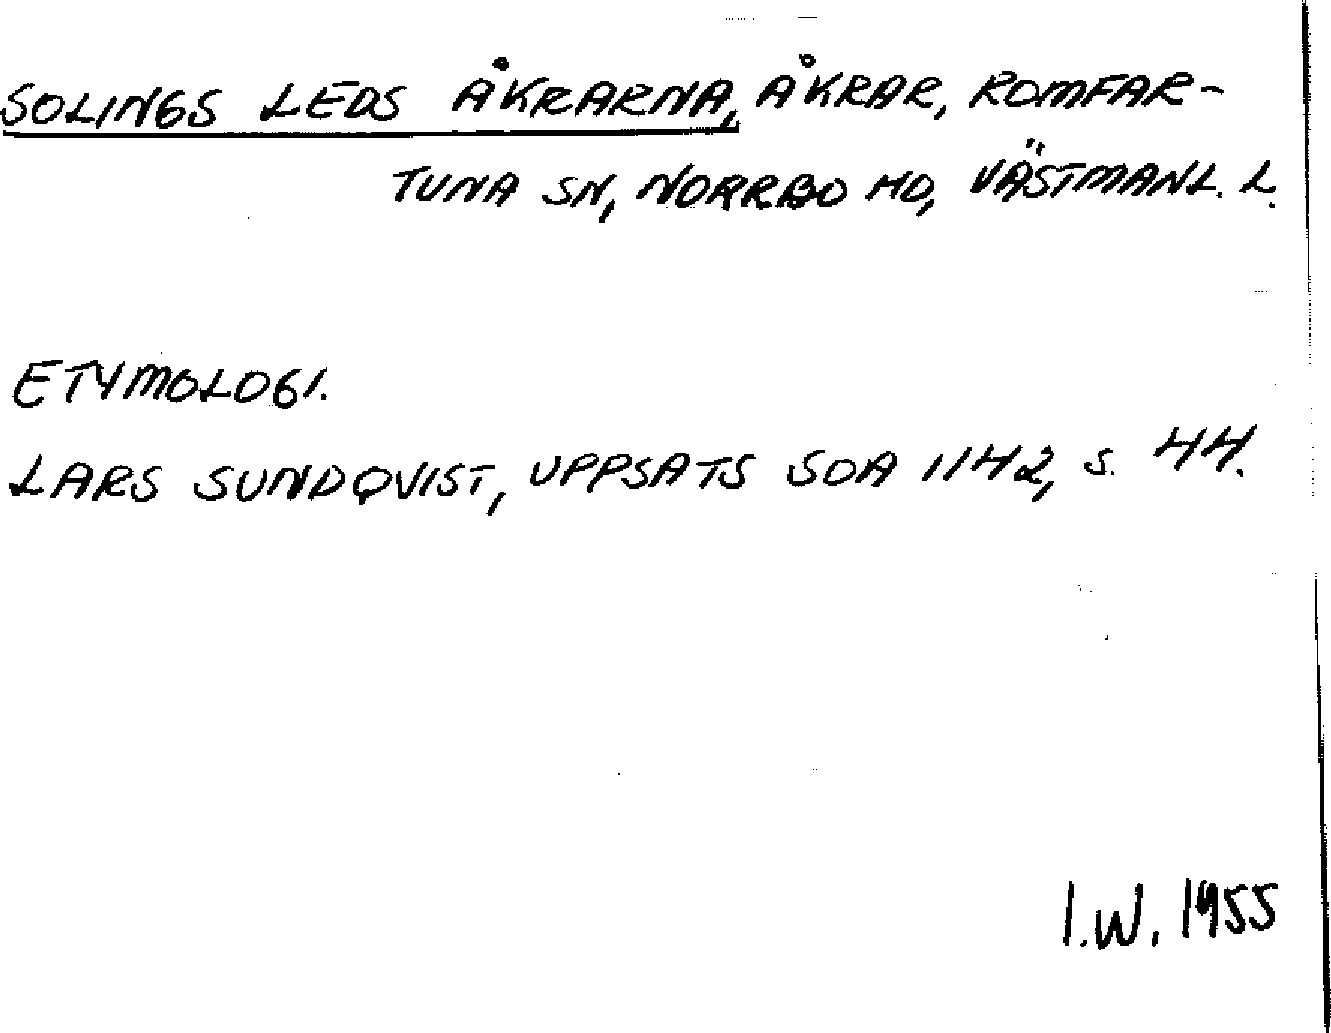 SOLINGS LEDS ÅKRARNA, ÅKRAR, ROMFAR-
TUNA SN, NORRBO HD, VÄSTMANL. L.
ETYMOLOGI.
LARS SUNDQVIST, UPPSATS SOA 1142, S. 44.
I.W. 1955